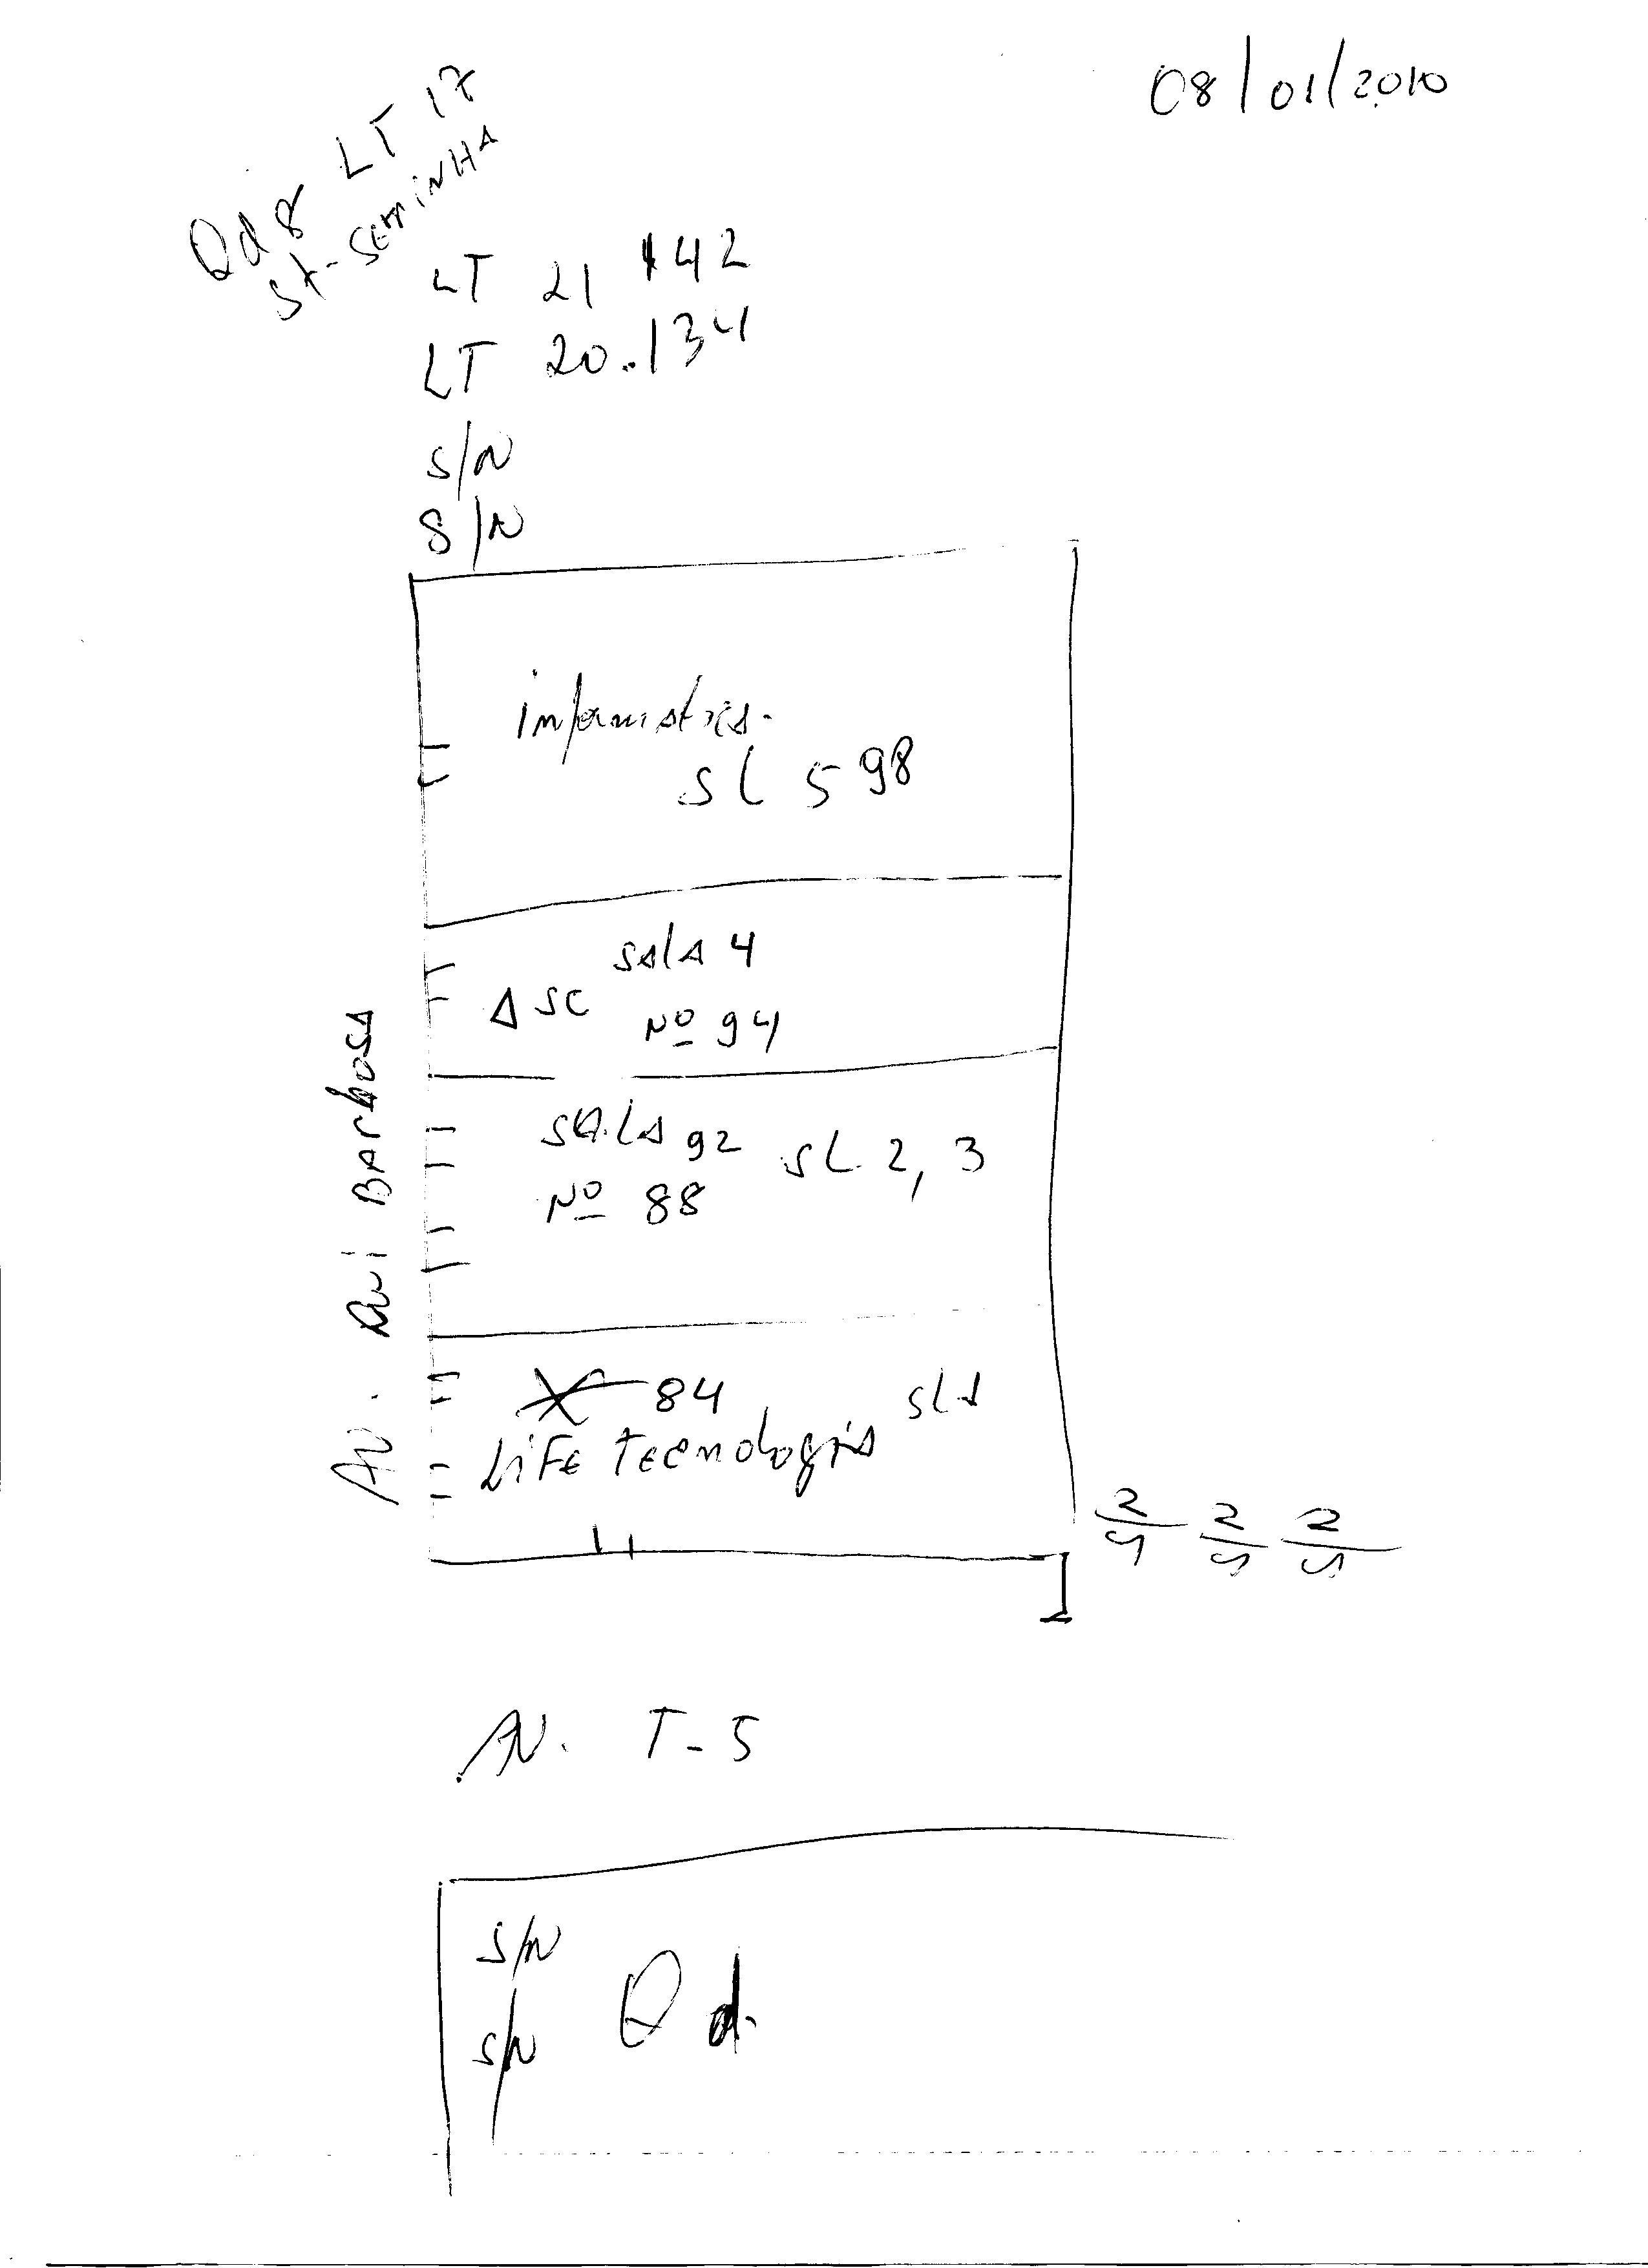 08/01/2010
Qd 8 LT 17
St- SERRINHA
LT 21 142
LT 20.134
S/N
S/N
informatica.
SL 5 98
SALA 4
ASC Nº 94
SALA 92 SL 2, 3
Nº 88
84 SL1
LiFE TECNologia
Av. Rui BArbosA
2 2 2
Av. T-5
S/N
S/N Qd.